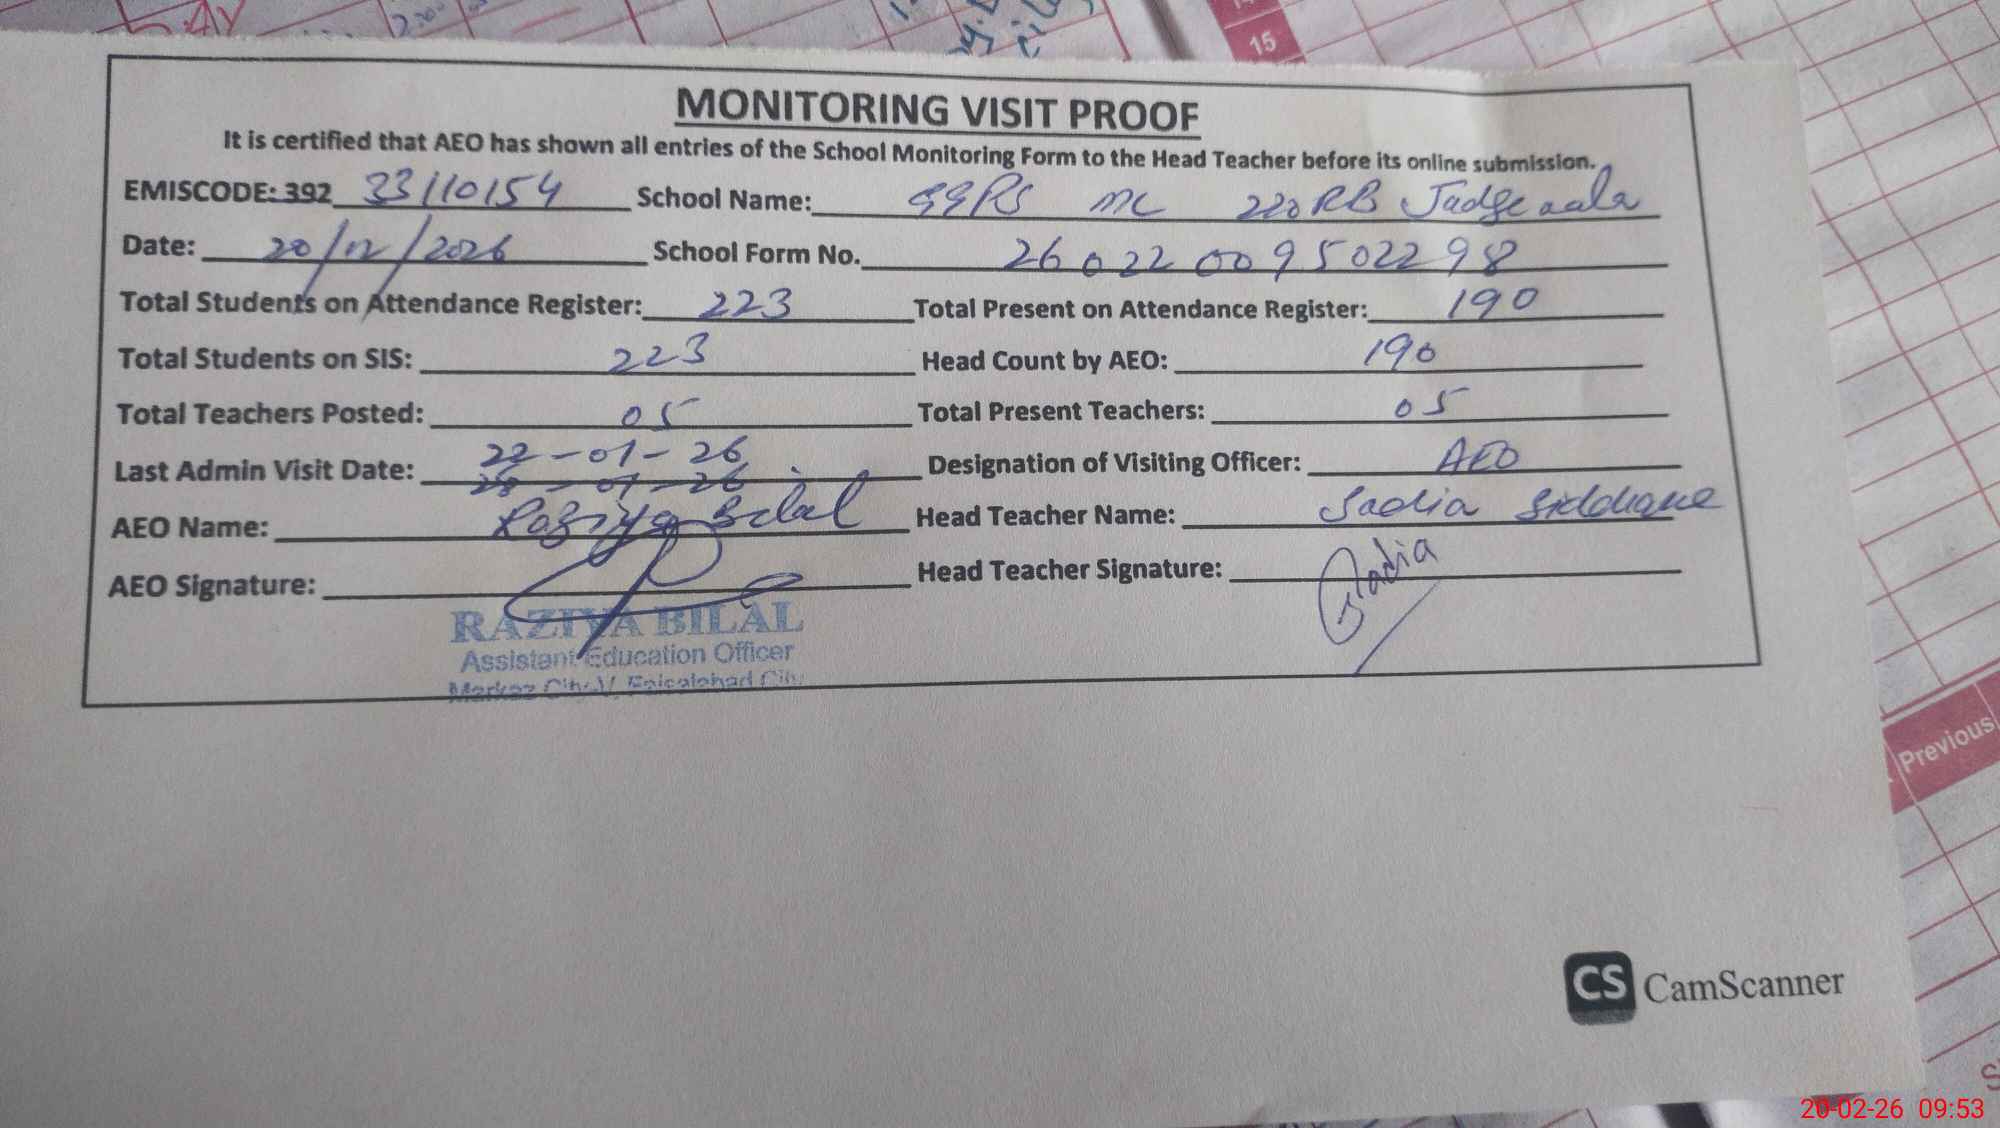 15
MONITORING VISIT PROOF
It is certified that AEO has shown all entries of the School Monitoring Form to the Head Teacher before its online submission.
EMISCODE: 392 33110154 School Name: GGPS MC 220 RB Jadgewala
Date: 20/12/2026 School Form No. 26022009502298
Total Students on Attendance Register: 223 Total Present on Attendance Register: 190
Total Students on SIS: 223 Head Count by AEO: 190
Total Teachers Posted: 05 Total Present Teachers: 05
Last Admin Visit Date: 22-01-26 Designation of Visiting Officer: AEO
AEO Name: Raziya Bilal Head Teacher Name: Sadia Siddique
AEO Signature: Head Teacher Signature: Sadia
RAZIYA BILAL
Assistant Education Officer
Markaz City V Faisalabad City
Previous
CS CamScanner
20-02-26 09:53